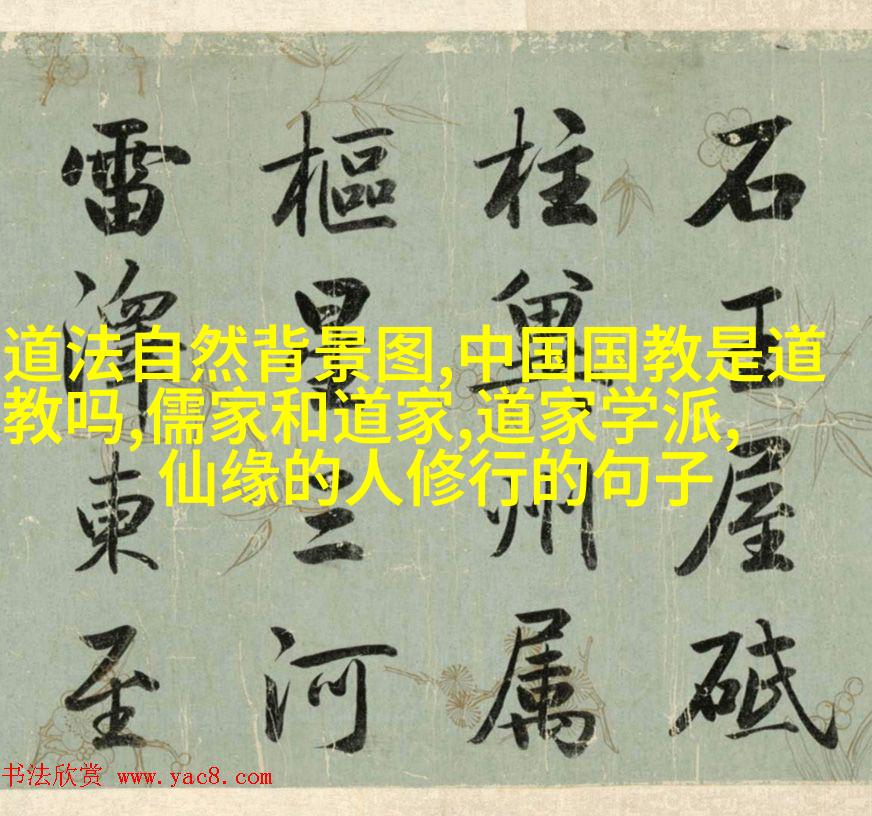 石王屋砥
柱冀州属
樞星三河
雷澤東至
道法自然背景图,中国国教是道
教吗,儒家和道家,道家学派,
仙缘的人修行的句子
书法欣赏 www.yac8.com